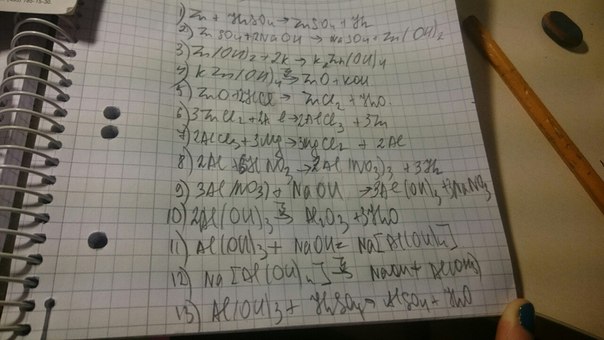 1) Zn + H₂SO₄ → ZnSO₄ + H₂
2) ZnSO₄ + 2NaOH → Na₂SO₄ + Zn(OH)₂
3) Zn(OH)₂ + 2K → K₂Zn(OH)₄
4) K Zn(OH)₄ → ZnO + KOH
5) ZnO + 2HCl → ZnCl₂ + H₂O
6) 3ZnCl₂ + 2Al → 2AlCl₃ + 3Zn
7) 2AlCl₃ + 3Mg → 3MgCl₂ + 2Al
8) 2Al + 6HNO₃ → 2Al(NO₃)₃ + 3H₂
9) 3Al(NO₃) + NaOH → 3Al(OH)₃ + 3NaNO₃
10) 2Al(OH)₃ → Al₂O₃ + 3H₂O
11) Al(OH)₃ + NaOH = Na[Al(OH)₄]
12) Na[Al(OH)₄] → NaOH + Al(OH)₃
13) Al(OH)₃ + H₂SO₄ → AlSO₄ + H₂O